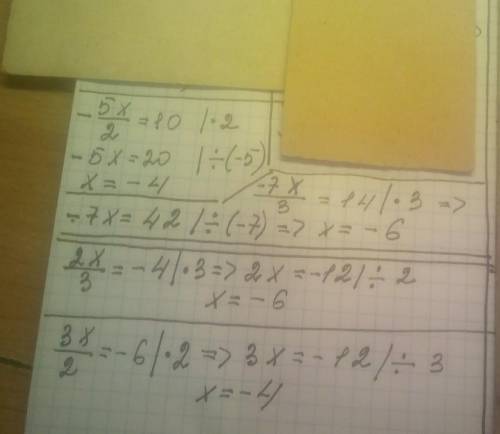 - 5x/2 = 10 | · 2
- 5x = 20 | ÷ (-5)
x = - 4
-7x/3 = 14 | · 3 =>
÷ 7x = 42 | ÷ (-7) => x = - 6
2x/3 = - 4 | · 3 => 2x = -12 | ÷ 2
x = - 6
3x/2 = - 6 | · 2 => 3x = - 12 | ÷ 3
x = - 4